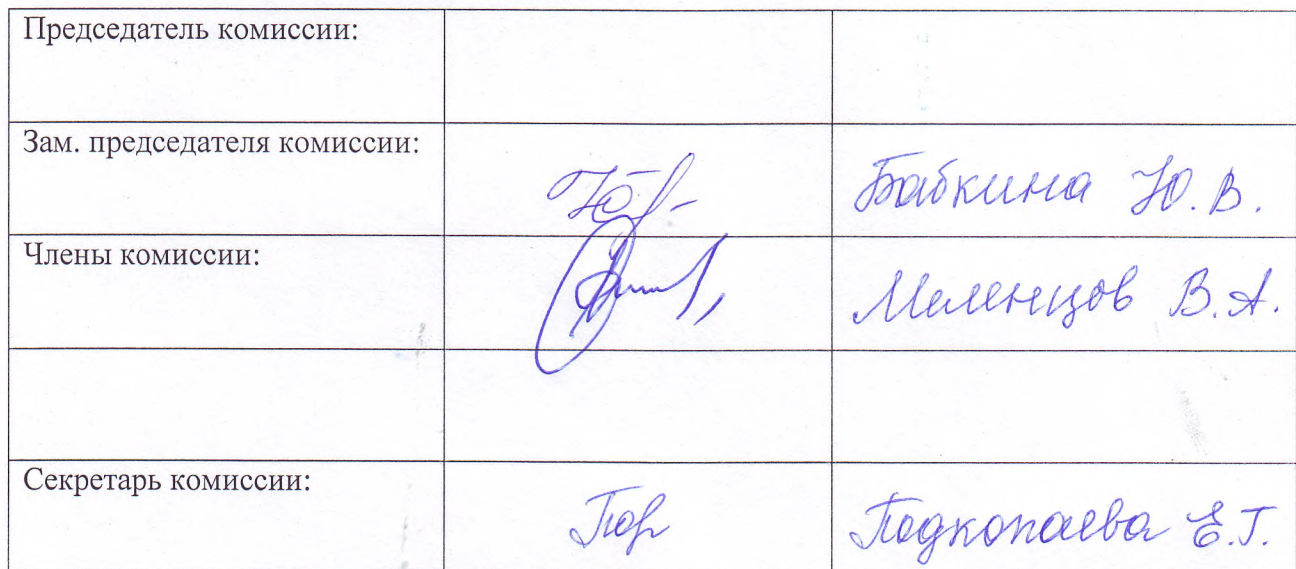 Председатель комиссии:
Зам. председателя комиссии:
Бабкина Ю. В.
Члены комиссии:
Меленцов В. А.
Секретарь комиссии:
Подкопаева Е.Г.